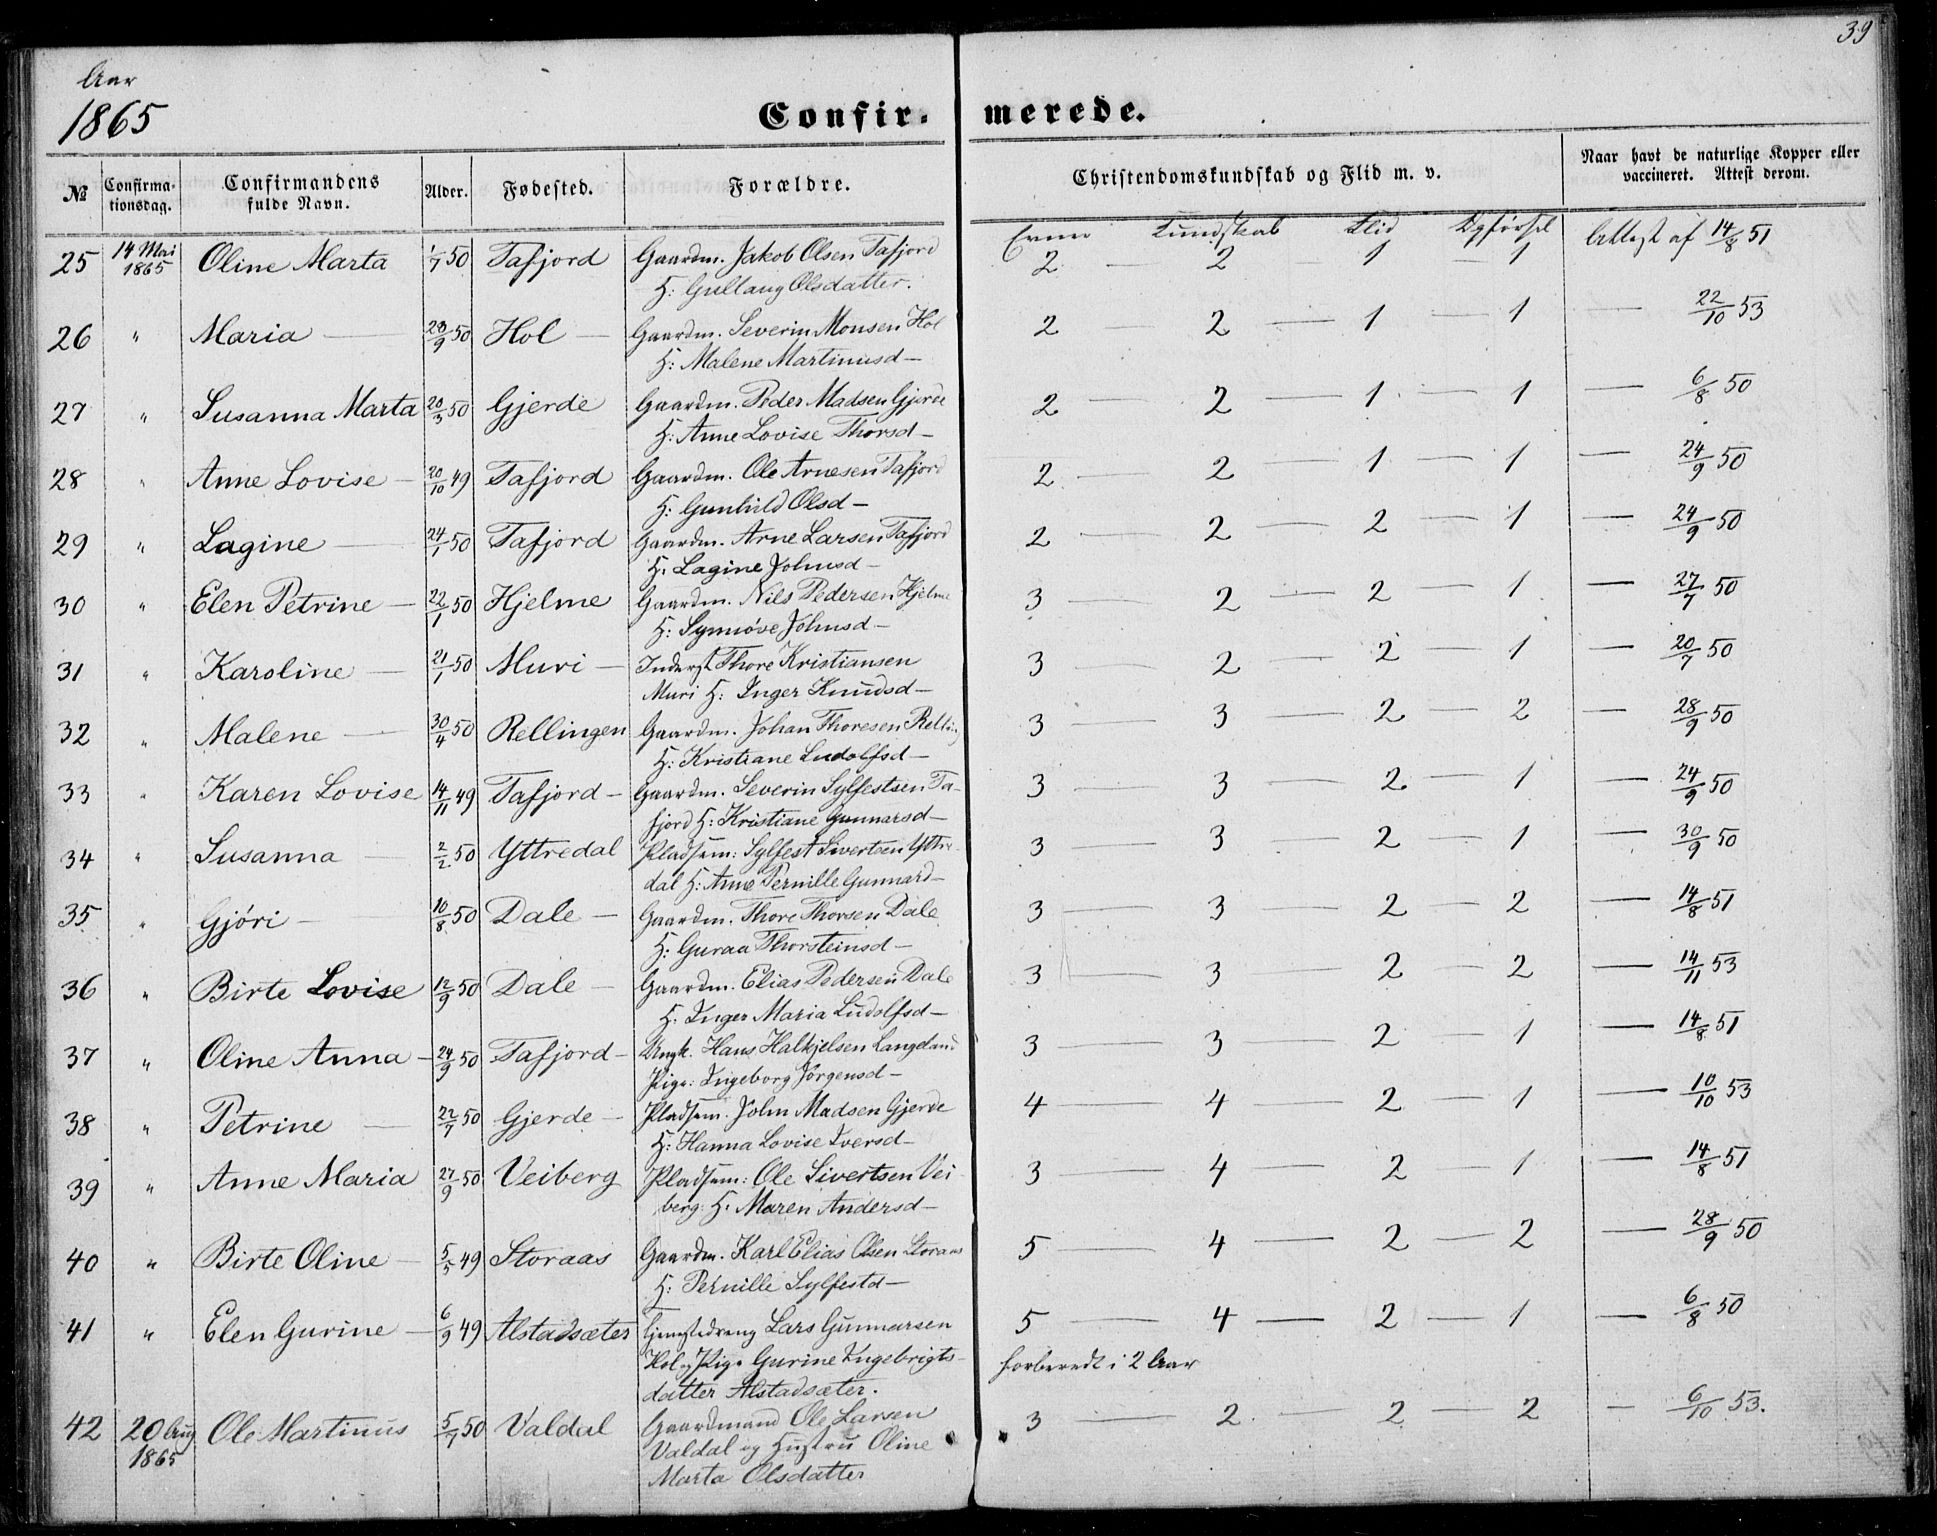 39
Aar
1865
Confirmerede.
№ Confirmationsdag. Confirmandens fulde Navn. Alder. Fødested. Forældre. Christendomskundskab og Flid m. v. Naar havt de naturlige Kopper eller vaccineret. Attest derom.
Evner Kundskab Flid Opførsel
25 14 Mai 1865 Oline Marta 1/7 50 Tafjord Gaardm. Jakob Olsen Tafjord 2 — 2 — 1 — 1 Attest af 14/8 51
H: Gullaug Olsdatter.
26 " Maria — 20/9 50 Hol — Gaardm. Severin Monsen Hol 2 — 2 — 1 — 1 — 22/10 53
H: Malene Martinusd —
27 " Susanna Marta 20/3 50 Gjerde Gaardm. Peder Madsen Gjerde 2 — 2 — 1 — 1 — 6/8 50
H: Anne Lovise Thorsd —
28 " Anne Lovise — 20/10 49 Tafjord Gaardm. Ole Arnesen Tafjord 2 — 2 — 1 — 1 — 24/9 50
H: Gunhild Olsd —
29 " Lagine — 24/1 50 Tafjord Gaardm. Arne Larsen Tafjord 2 — 2 — 2 — 1 — 24/9 50
H. Lagine Johnsd —
30 " Elen Petrine — 22/1 50 Hjelme Gaardm. Nils Pedersen Hjelme 3 — 2 — 2 — 1 — 27/7 50
H: Synnøve Johnsd —
31 " Karoline — 21/1 50 Muri — Inderst Thore Kristiansen 3 — 2 — 2 — 1 — 20/7 50
Muri H: Inger Knudsd —
32 " Malene — 30/4 50 Rellingen Gaardm. Johan Thoresen Relling 3 — 3 — 2 — 2 — 28/9 50
H: Kristiane Ludolfsd —
33 " Karen Lovise 14/11 49 Tafjord — Gaardm. Severin Sylfestsen Ta- 3 — 3 — 2 — 1 — 24/9 50
fjord H: Kristiane Gunnarsd —
34 " Susanna — 2/2 50 Yttredal Pladsem: Sylfest Sivertsen Yttre- 3 — 3 — 2 — 1 — 30/9 50
dal H: Anne Pernille Gunnard —
35 " Gjøri — 10/8 50 Dale — Gaardm. Thore Thorsen Dale 3 — 3 — 2 — 2 — 14/8 51
H: Guraa Thorsteinsd —
36 " Birte Lovise 12/9 50 Dale — Gaardm. Elias Pedersen Dale 3 — 3 — 2 — 2 — 14/11 53
H. Inger Maria Ludolfsd —
37 " Oline Anna — 24/9 50 Tafjord — Ungk. Hans Halkjelsen Langeland 3 — 3 — 2 — 1 — 14/8 51
Pige: Ingeborg Jørgensd —
38 " Petrine — 22/7 50 Gjerde — Pladsem. John Madsen Gjerde 4 — 4 — 2 — 1 — 10/10 53
H: Hanna Lovise Iversd —
39 " Anne Maria 27/9 50 Veiberg Pladsem: Ole Sivertsen Vei- 3 — 4 — 2 — 1 — 14/8 51
berg: H. Maren Andersd —
40 " Birte Oline — 5/3 49 Storaas Gaardm. Karl Elias Olsen Storaas 5 — 4 — 2 — 2 — 28/9 50
H: Pernille Sylfestd —
41 " Elen Gurine — 6/9 49 Alstadsæter Tjenestedreng Lars Gunnarsen 5 — 4 — 2 — 1 — 6/8 50
Hol og Pige Gurine Ingebrigts- forberedt i 2 Aar
datter Alstadsæter.
42 20 Aug 1865 Ole Martinus 5/7 50 Valdal Gaardmand Ole Larsen 3 — 2 — 2 — 2 — 6/10 53.
Valdal og Hustru Oline
Marta Olsdatter